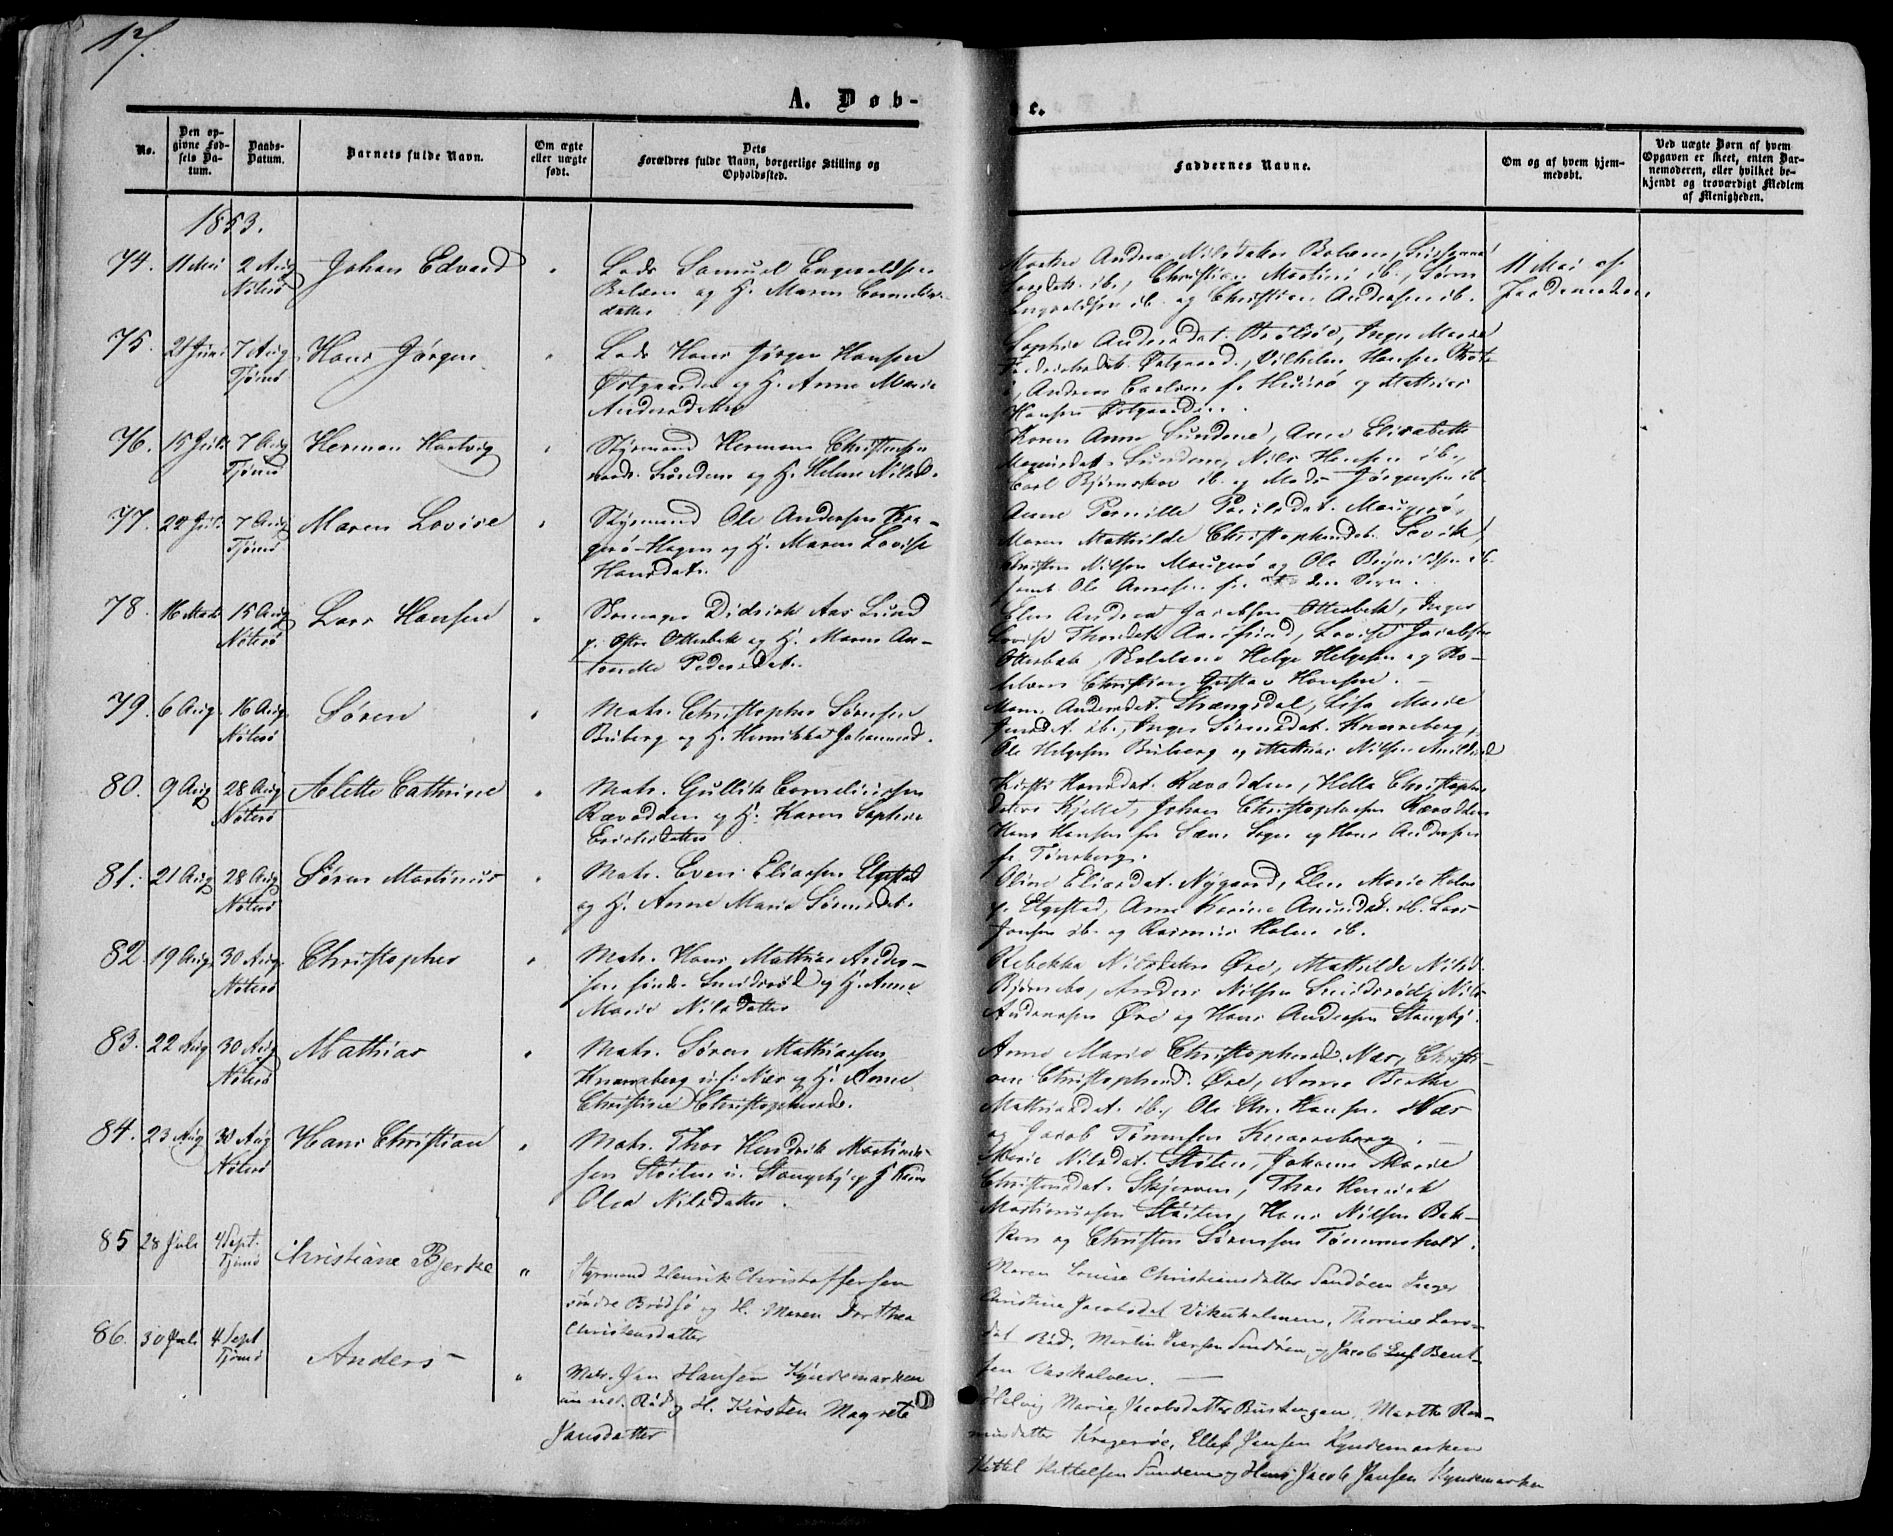 17.
A. Døb-
No.
Den op-
givne Fød-
sels Da-
tum.
Daabs-
Datum.
Barnets fulde Navn.
Om ægte
eller uægte
født.
Dets
Forældres fulde Navn, borgerlige Stilling og
Opholdssted.
1853.
74. 11 Mai 2 Aug Nøterø Johan Edvard " Lods Samuel Engvoldsen
Bolæren og H. Maren Cornelius-
datter
75. 7 Aug Tjømø Hans Jørgen " Lods Hans Jørgen Hansen
Østgaarden og H. Anne Marie
Andersdatter
76. 15 Juli 7 Aug Tjømø Herman Hartvig " Styrmand Herman Christensen
Sunden og H. Helene Nilsd.
77. 7 Aug Tjømø Maren Lovise " Styrmand Ole Andersen Kra-
gerø-Hagen og H. Maren Lovise
Hansdat.
78. 16 15 Aug Nøterø Lars Hansen " Skomager Didrik Aas Lund
p. Østre Otterbek og H. Maren An-
tonette Pedersdat.
79. 6 Aug. 16 Aug. Nøterø Søren " Matr. Christopher Sørensen
Buberg og H. Henrikka Johannesd.
80. 9 Aug 28 Aug Nøterø Alette Cathrine " Matr. Gullik Corneliussen
Rævodden og H. Karen Sophie
Erichsdatter
81. 21 Aug 28 Aug Nøterø Søren Martinius " Matr. Even Eliassen Elgestad
og H. Anne Marie Sørensdat.
82. 19 Aug. 30 Aug. Nøterø Christopher " Matr. Hans Mathias Ander-
sen søndr. Smidsrød og H. Anne
Marie Nilsdatter
83. 22 Aug 30 Aug Nøterø Mathias " Matr. Søren Mathiassen
Knarreberg u. f. Næs og H. Anne
Christine Christophersd.
84. 23 Aug 30 Aug Nøterø Hans Christian " Matr. Thor Hendrik Martinius-
sen Støiten u. Stangeby og H.
Olea Nilsdatter.
85 28 Juli 4 Sept. Tjømø Christiane Bjerke " Styrmand Henrik Christoffersen
søndre Brødsø og H. Maren Dorthea
Christensdatter
86. 30 Juli 4 Sept Tjømø Anders " Matr. Jan Hansen Kyndemarken
und. Rød og H. Kirsten Magrete
Jansdatter
e.
Faddernes Navne.
Om og af hvem hjem-
medøbt.
Ved uægte Børn af hvem
Opgaven er skeet, enten Bar-
nemoderen, eller hvilket be-
kjendt og troværdigt Medlem
af Menigheden.
Marthe Andrea Nilsdatter Bolæren,
ib., Christian Martini ib., Søren
Engvoldsen ib. og Christian Andersen ib.
11 Mai af
Jordemoderen.
Sophie Andersdat. Inger Marie
Fredriksdat. Østgaard, Vilhelm Hansen
Andreas Carlsen f. Hvasø og Mathias
Hansen Østgaarden.
Karen Anne Sundene, Anne Elisabeth
Magnusdat. Sundene, Nils Hansen ib.,
Carl Bjørnskov ib. og Mads Jørgensen ib
Anne Pernille Paulsdat. Maugerø,
Maren Mathilde Christophersdat. Sevik,
Christen Nilsen Maugerø og Ole ib.
samt Ole
Elen Andrea Jacobsen Otterbek, Inger
Lovise Thorsdat. Lovise Jacobsen
Otterbek, Helge Helgesen og
Christian Gustav Hansen. —
Maren Andersdat. Strængsdal, Lisa Marie
ib., Inger Sørensdat. Knarreberg,
Ole Helgesen Buberg og Mathias Nilsen
Kirsti Hansdat. Rævodden, Hella Christophers-
datter Kjelle, Johan Christophersen Rævodden
Hans Hansen fra Sæm Sogn og Hans Andersen
fr. Tønsberg.
Oline Eliasdat. Nygaard, Elen Marie Holm
p. Elgestad, Anne Karine Amundsd. ib. Lars
Jansen ib. og Rasmus Holm ib.
Rebekka Nilsdatter Øre, Mathilde Nilsd.
Bjørnebo, Anders Nilsen Smidsrød, Nils
Andersen Øre og Hans Andersen Stangeby.
Anne Marie Christophersd. Næs, Christi-
ane Christophersd. Øre, Anne Berthe
Mathiasdat. ib., Ole Chr. Hansen Næs
og Jacob Tønnesen Knarreberg. —
Marie Nilsdat. Støiten, Johanne Marie
Christensdat. Skjerven, Thor Henrik
Martinussen Støiten, Hans Nilsen Bak-
ken og Christen Sørensen Tømmerholt.
Maren Louise Christiansdatter Sandøen Inger
Christine Jacobsdat Vikerholmen, Thorine Lars-
dat Rød, Martin Iversen Sandøen og Jacob Bent-
sen Vaskalven. —
Marie Jacobsdatter Buskengen, Marthe Ras-
musdatter Kragerøe, Ellef Jansen Kyndemarken
Kittel Kittelsen Sundene og Hans Jacob Jansen Kyndemarken